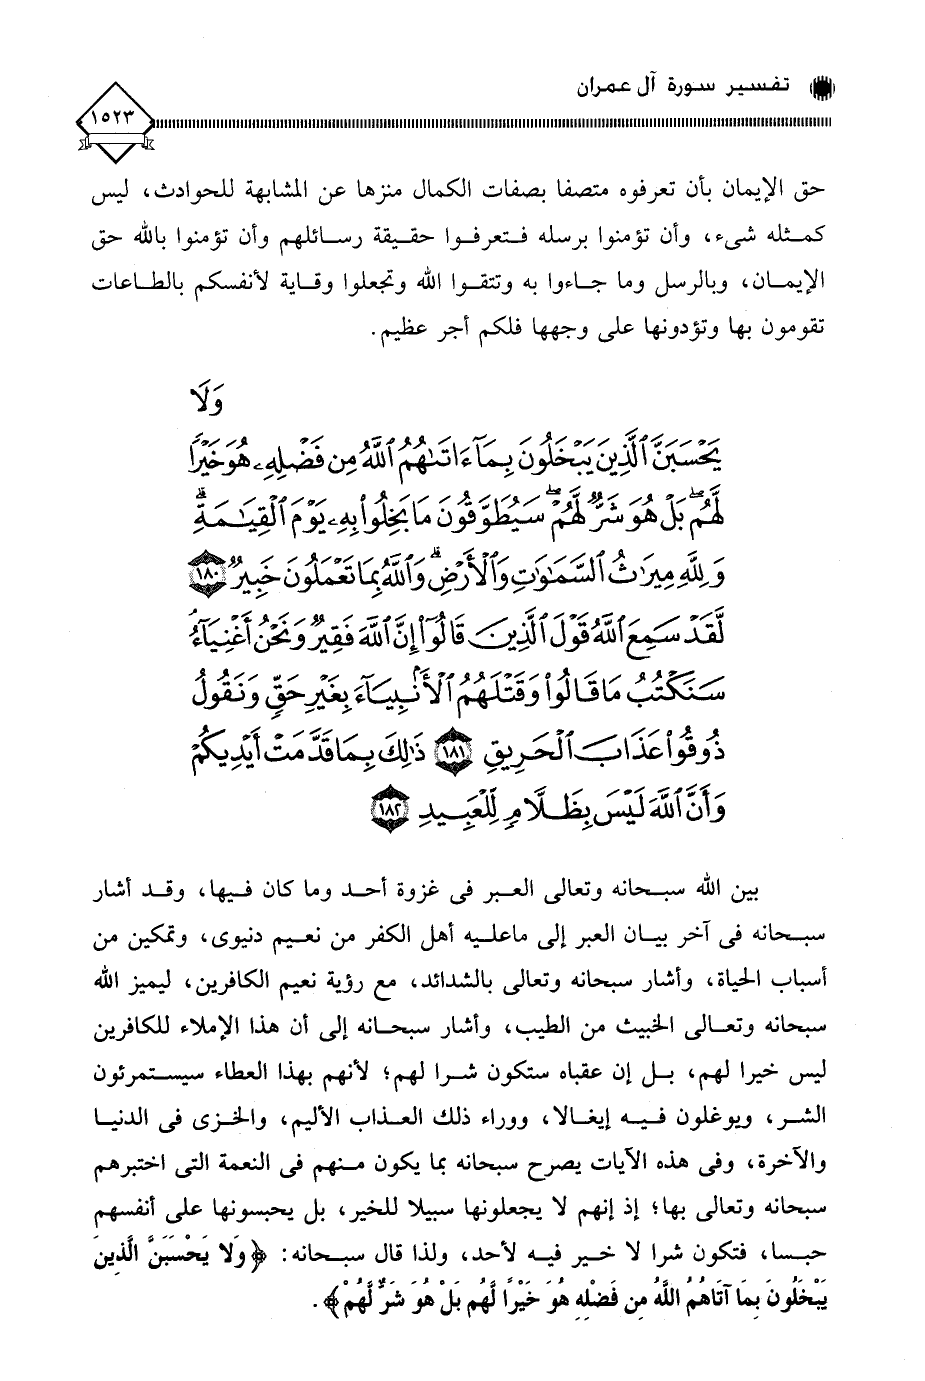 تفسير سورة آل عمران
١٥٢٣
حق الإيمان بأن تعرفوه متصفا بصفات الكمال منزها عن المشابهة للحوادث، ليس
كمثله شىء، وأن تؤمنوا برسله فتعرفوا حقيقة رسائلهم وأن تؤمنوا بالله حق
الإيمان، وبالرسل وما جاءوا به وتتقوا الله وتجعلوا وقاية لأنفسكم بالطاعات
تقومون بها وتؤدونها على وجهها فلكم أجر عظيم.
وَلَا
يَحْسَبَنَّ ٱلَّذِينَ يَبْخَلُونَ بِمَآ ءَاتَىٰهُمُ ٱللَّهُ مِن فَضْلِهِۦ هُوَ خَيْرًا
لَّهُم ۖ بَلْ هُوَ شَرٌّ لَّهُمْ ۖ سَيُطَوَّقُونَ مَا بَخِلُوا۟ بِهِۦ يَوْمَ ٱلْقِيَٰمَةِ ۗ
وَلِلَّهِ مِيرَٰثُ ٱلسَّمَٰوَٰتِ وَٱلْأَرْضِ ۗ وَٱللَّهُ بِمَا تَعْمَلُونَ خَبِيرٌ ١٨٠
لَّقَدْ سَمِعَ ٱللَّهُ قَوْلَ ٱلَّذِينَ قَالُوٓا۟ إِنَّ ٱللَّهَ فَقِيرٌ وَنَحْنُ أَغْنِيَآءُ
سَنَكْتُبُ مَا قَالُوا۟ وَقَتْلَهُمُ ٱلْأَنۢبِيَآءَ بِغَيْرِ حَقٍّ وَنَقُولُ
ذُوقُوا۟ عَذَابَ ٱلْحَرِيقِ ١٨١ ذَٰلِكَ بِمَا قَدَّمَتْ أَيْدِيكُمْ
وَأَنَّ ٱللَّهَ لَيْسَ بِظَلَّامٍ لِّلْعَبِيدِ ١٨٢
بين الله سبحانه وتعالى العبر فى غزوة أحد وما كان فيها، وقد أشار
سبحانه فى آخر بيان العبر إلى ماعليه أهل الكفر من نعيم دنيوى، وتمكين من
أسباب الحياة، وأشار سبحانه وتعالى بالشدائد، مع رؤية نعيم الكافرين، ليميز الله
سبحانه وتعالى الخبيث من الطيب، وأشار سبحانه إلى أن هذا الإملاء للكافرين
ليس خيرا لهم، بل إن عقباه ستكون شرا لهم؛ لأنهم بهذا العطاء سيستمرئون
الشر، ويوغلون فيه إيغالا، ووراء ذلك العذاب الأليم، والخزى فى الدنيا
والآخرة، وفى هذه الآيات يصرح سبحانه بما يكون منهم فى النعمة التى اختبرهم
سبحانه وتعالى بها؛ إذ إنهم لا يجعلونها سبيلا للخير، بل يحبسونها على أنفسهم
حبسا، فتكون شرا لا خير فيه لأحد، ولذا قال سبحانه: ﴿وَلا يَحْسَبَنَّ الَّذِينَ
يَبْخَلُونَ بِمَا آتَاهُمُ اللَّهُ مِن فَضْلِهِ هُوَ خَيْرًا لَّهُم بَلْ هُوَ شَرٌّ لَّهُمْ﴾.